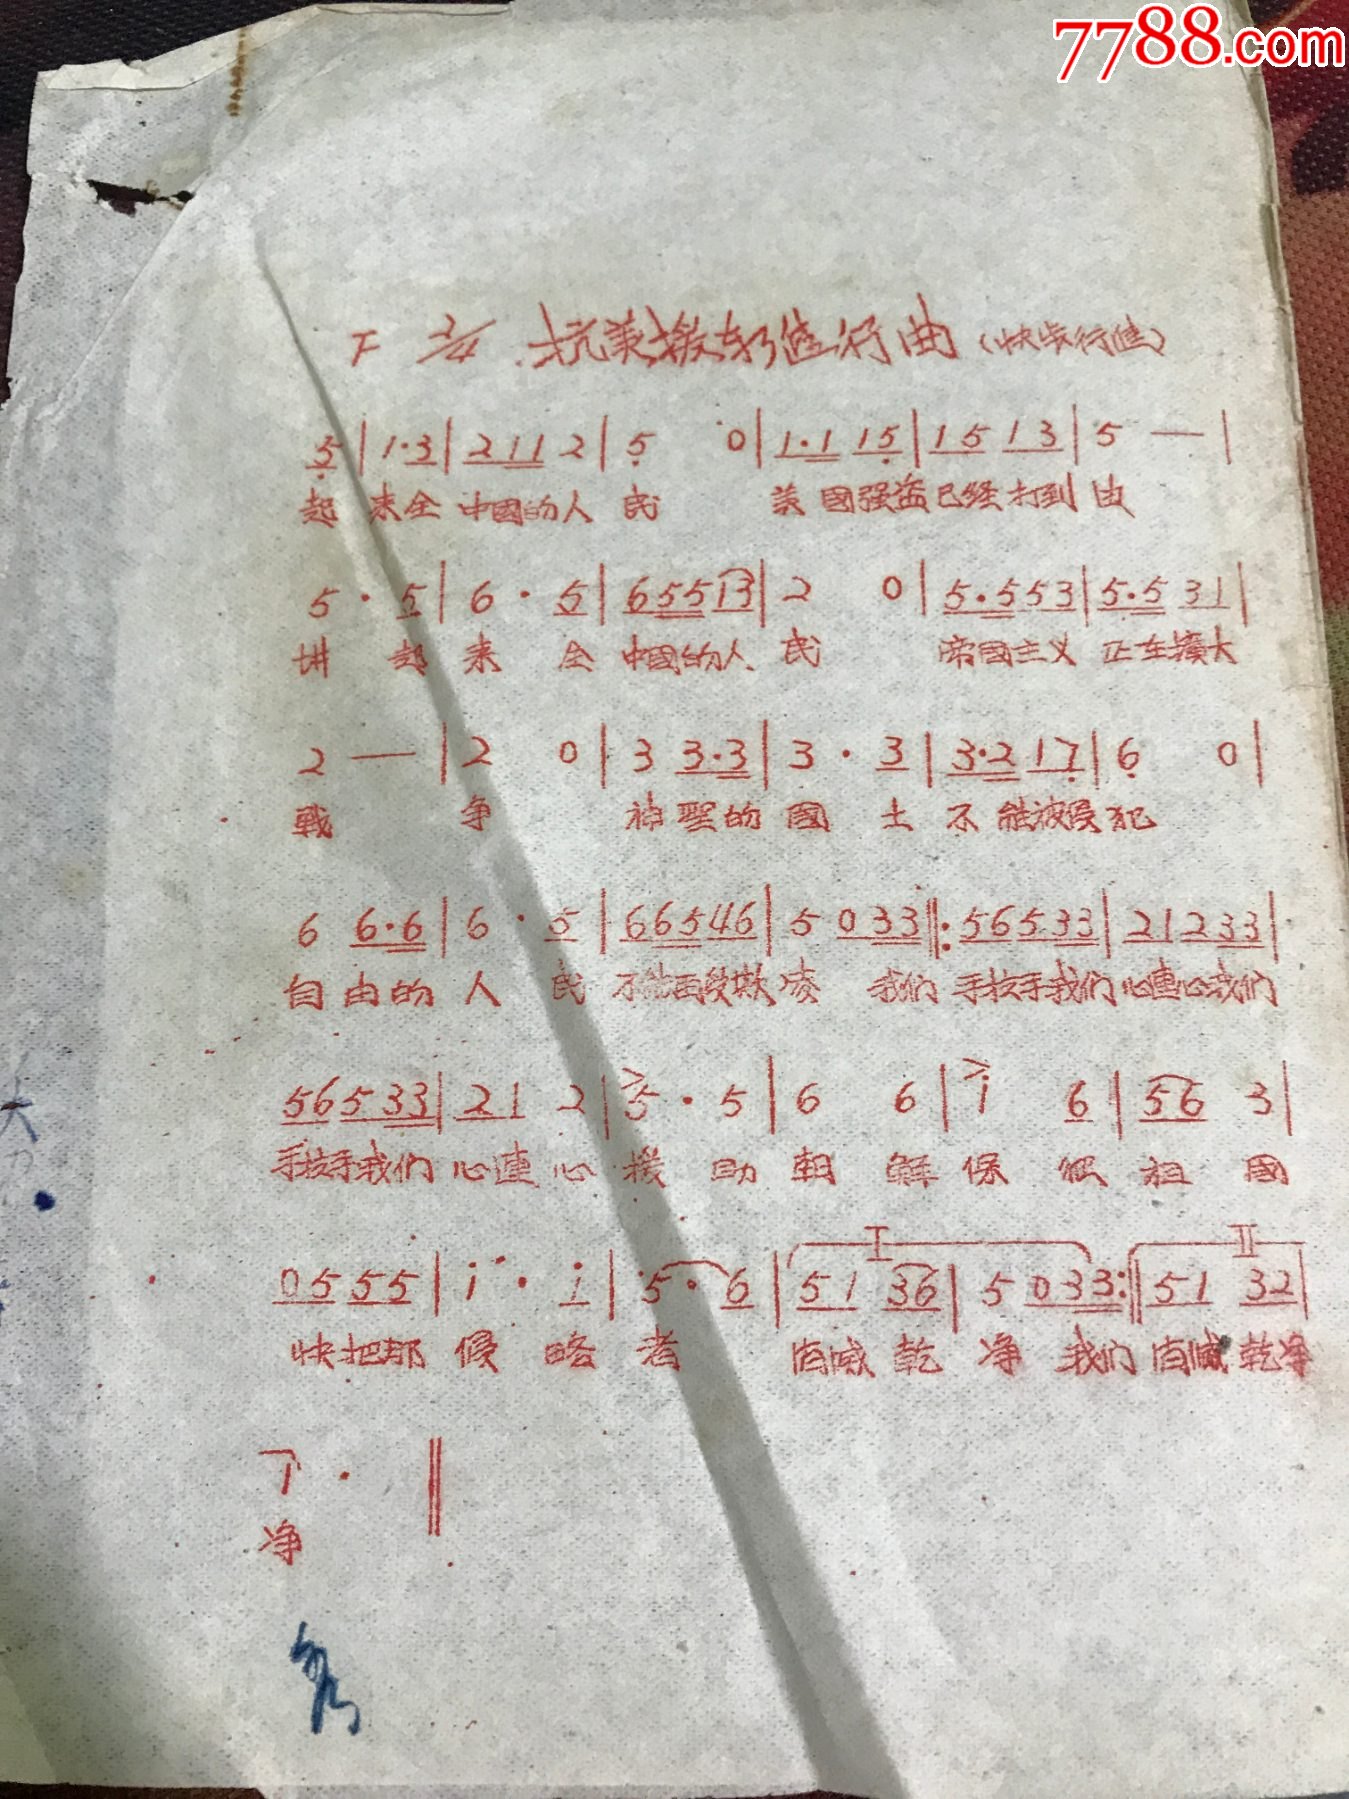 7788.com
F 2/4 抗美援朝進行曲(快步行進)
5|1·3|2112|5 0|1·115|1513|5 —|
起来全中國的人民 美國强盗已经打到边
5·5|6·5|65513|2 0|5·553|5·531|
起来全中國的人民 帝國主义正在擴大
2 —|2 0|3 3·3|3·3|3·217|6 0|
戰争 神聖的國土不能被侵犯
6 6·6|6·5|66546|5 033‖:56533|21233|
自由的人民不能再受欺凌 我们手拉手我们心連心我们
56533|21 2|5·5|6 6|i 6|56 3|
手拉手我们心連心援助朝鮮保衛祖國
0555|i·i|5·6|I 51 36|5 033:‖II 51 32|
快把那侵略者 消滅乾净 我们消滅乾净
i· ‖
净